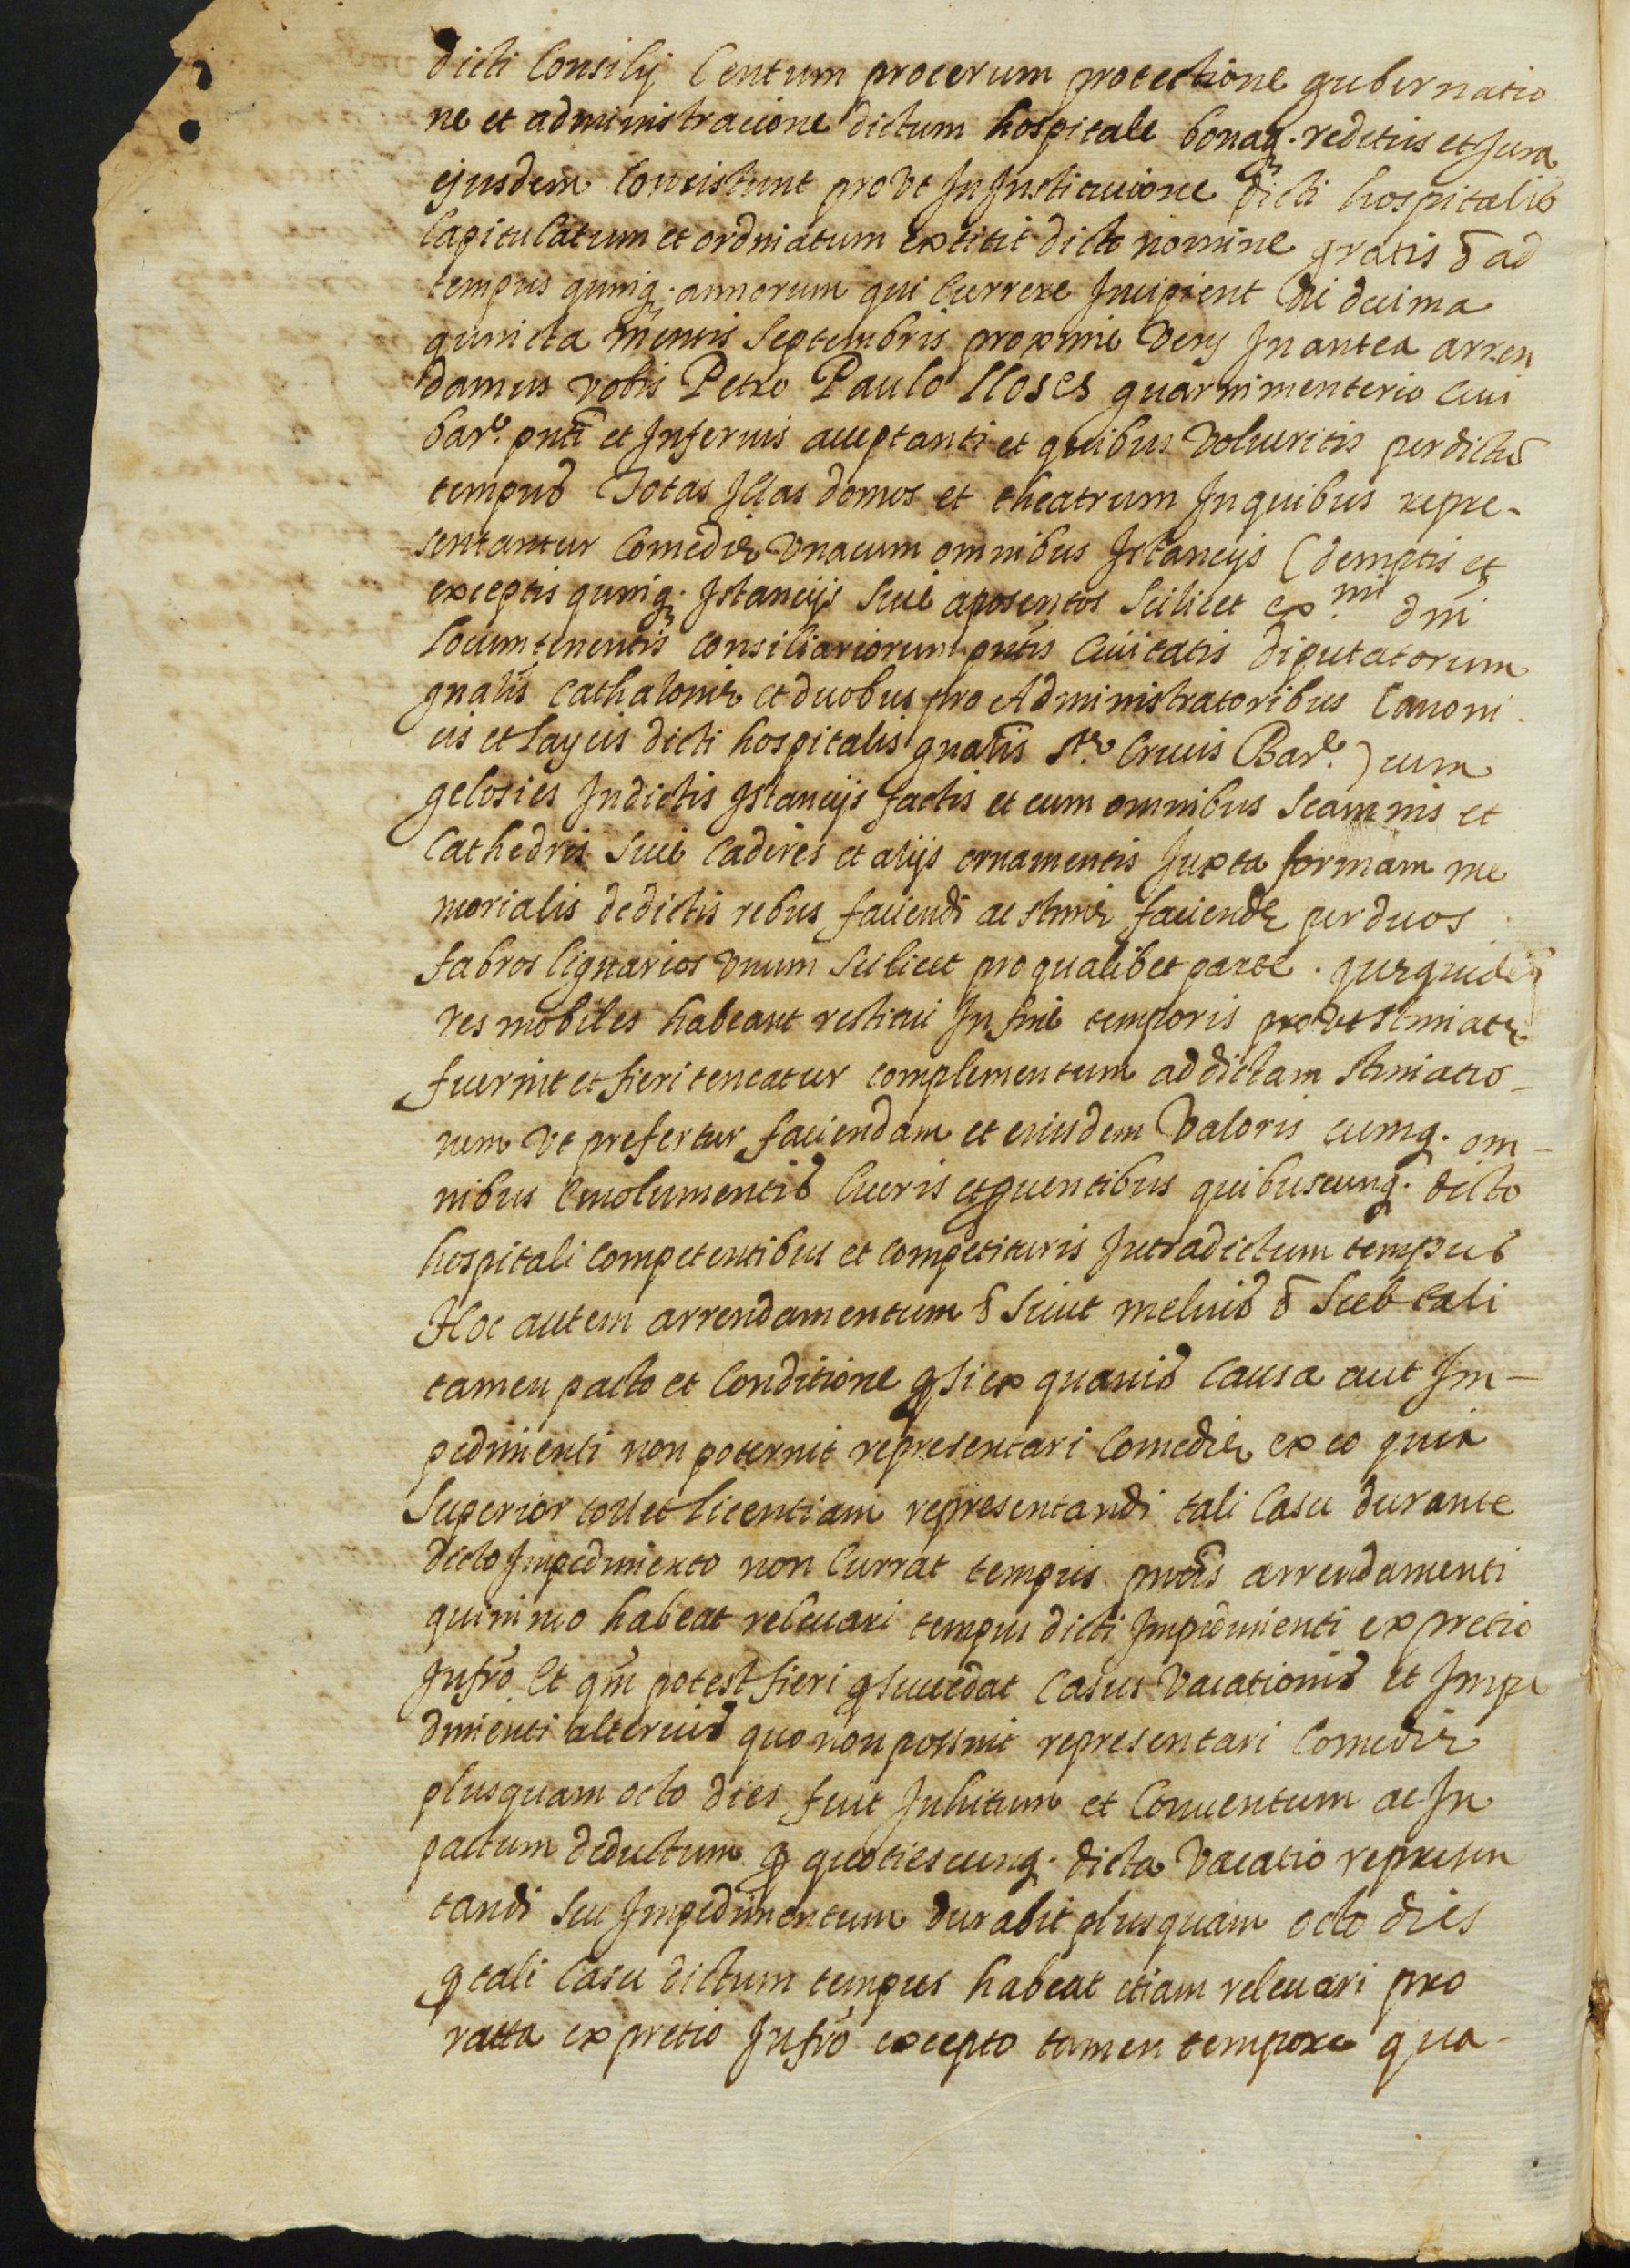 dicti Consilij Centum procerum protectione gubernatio
ne et administracione dictum hospitale bonaq. reditus et Jura
ejusdem Consistunt prout In Institucione dicti hospitalis
Capitulatum et ordinatum extitit dicto nomine gratis & ad
tempus quinq. annorum qui Currere Incipient die decima
quinta mensis Septembris proxime Venj Inantea arren
damus vobis Petro Paulo lloses guarnimenterio Ciui
barᵉ. pnti et Inferius acceptanti et quibus Volueritis perdictũ
tempus Totas Illas domos et theatrum Inquibus repre-
sentantur Comediæ Vnacum omnibus Istancijs (demptis et
exceptis quinq. Istancijs Siue aposentos Scilicet exᵐⁱ dñi
Locumtenentis consiliariorum pñtis Ciuitatis diputatorum
gñalis Cathaloniæ et duobus pro Administratoribus Canoni
cis et Laycis dicti hospitalis gñalis Stæ Crucis Barᵉ.) cum
gelosies Indictis Istancijs factis et cum omnibus Scamnis et
Cathedris Siue Cadires et alijs ornamentis Juxta formam me
morialis dedictis rebus faciendi ac stimæ faciendæ per duos
fabros lignarios Vnum Scilicet pro qualibet parte. quæquidem
res mobiles habeant restitui In fine temporis prout stimatæ
fuerint et fieri teneatur complementum addictam stimatio-
nem Vt prefertur faciendam et eiusdem Valoris cumq. om-
nibus Emolumentis Lucris et quentibus quibuscunq. dicto
hospitali Competentibus et competituris Intradictum tempus
Hoc autem arrendamentum & Sicut melius & Sub tali
tamen pacto et Conditione q si ex quauis Causa aut Im-
pedimenti non poterint representari Comediæ ex eo quia
Superior tollet Licentiam representandi tali Casu durante
dicto Impedimento non Currat tempus pñtis arrendamenti
quinimo habeat releuari tempus dicti Impedimenti ex pretio
Infrõ Et qm potest fieri q succedat Casus Vacationis et Impe
dimenti alterius quo non possint representari Comediæ
plusquam octo dies fuit Inhitum et Conuentum ac In
pactum deductum q quotiescunq. dicta Vacatio represen
tandi Seu Impedimentum durabit plusquam octo dies
q tali Casu dictum tempus habeat etiam releuari pro
ratta ex pretio Infrõ excepto tamen tempore qua-